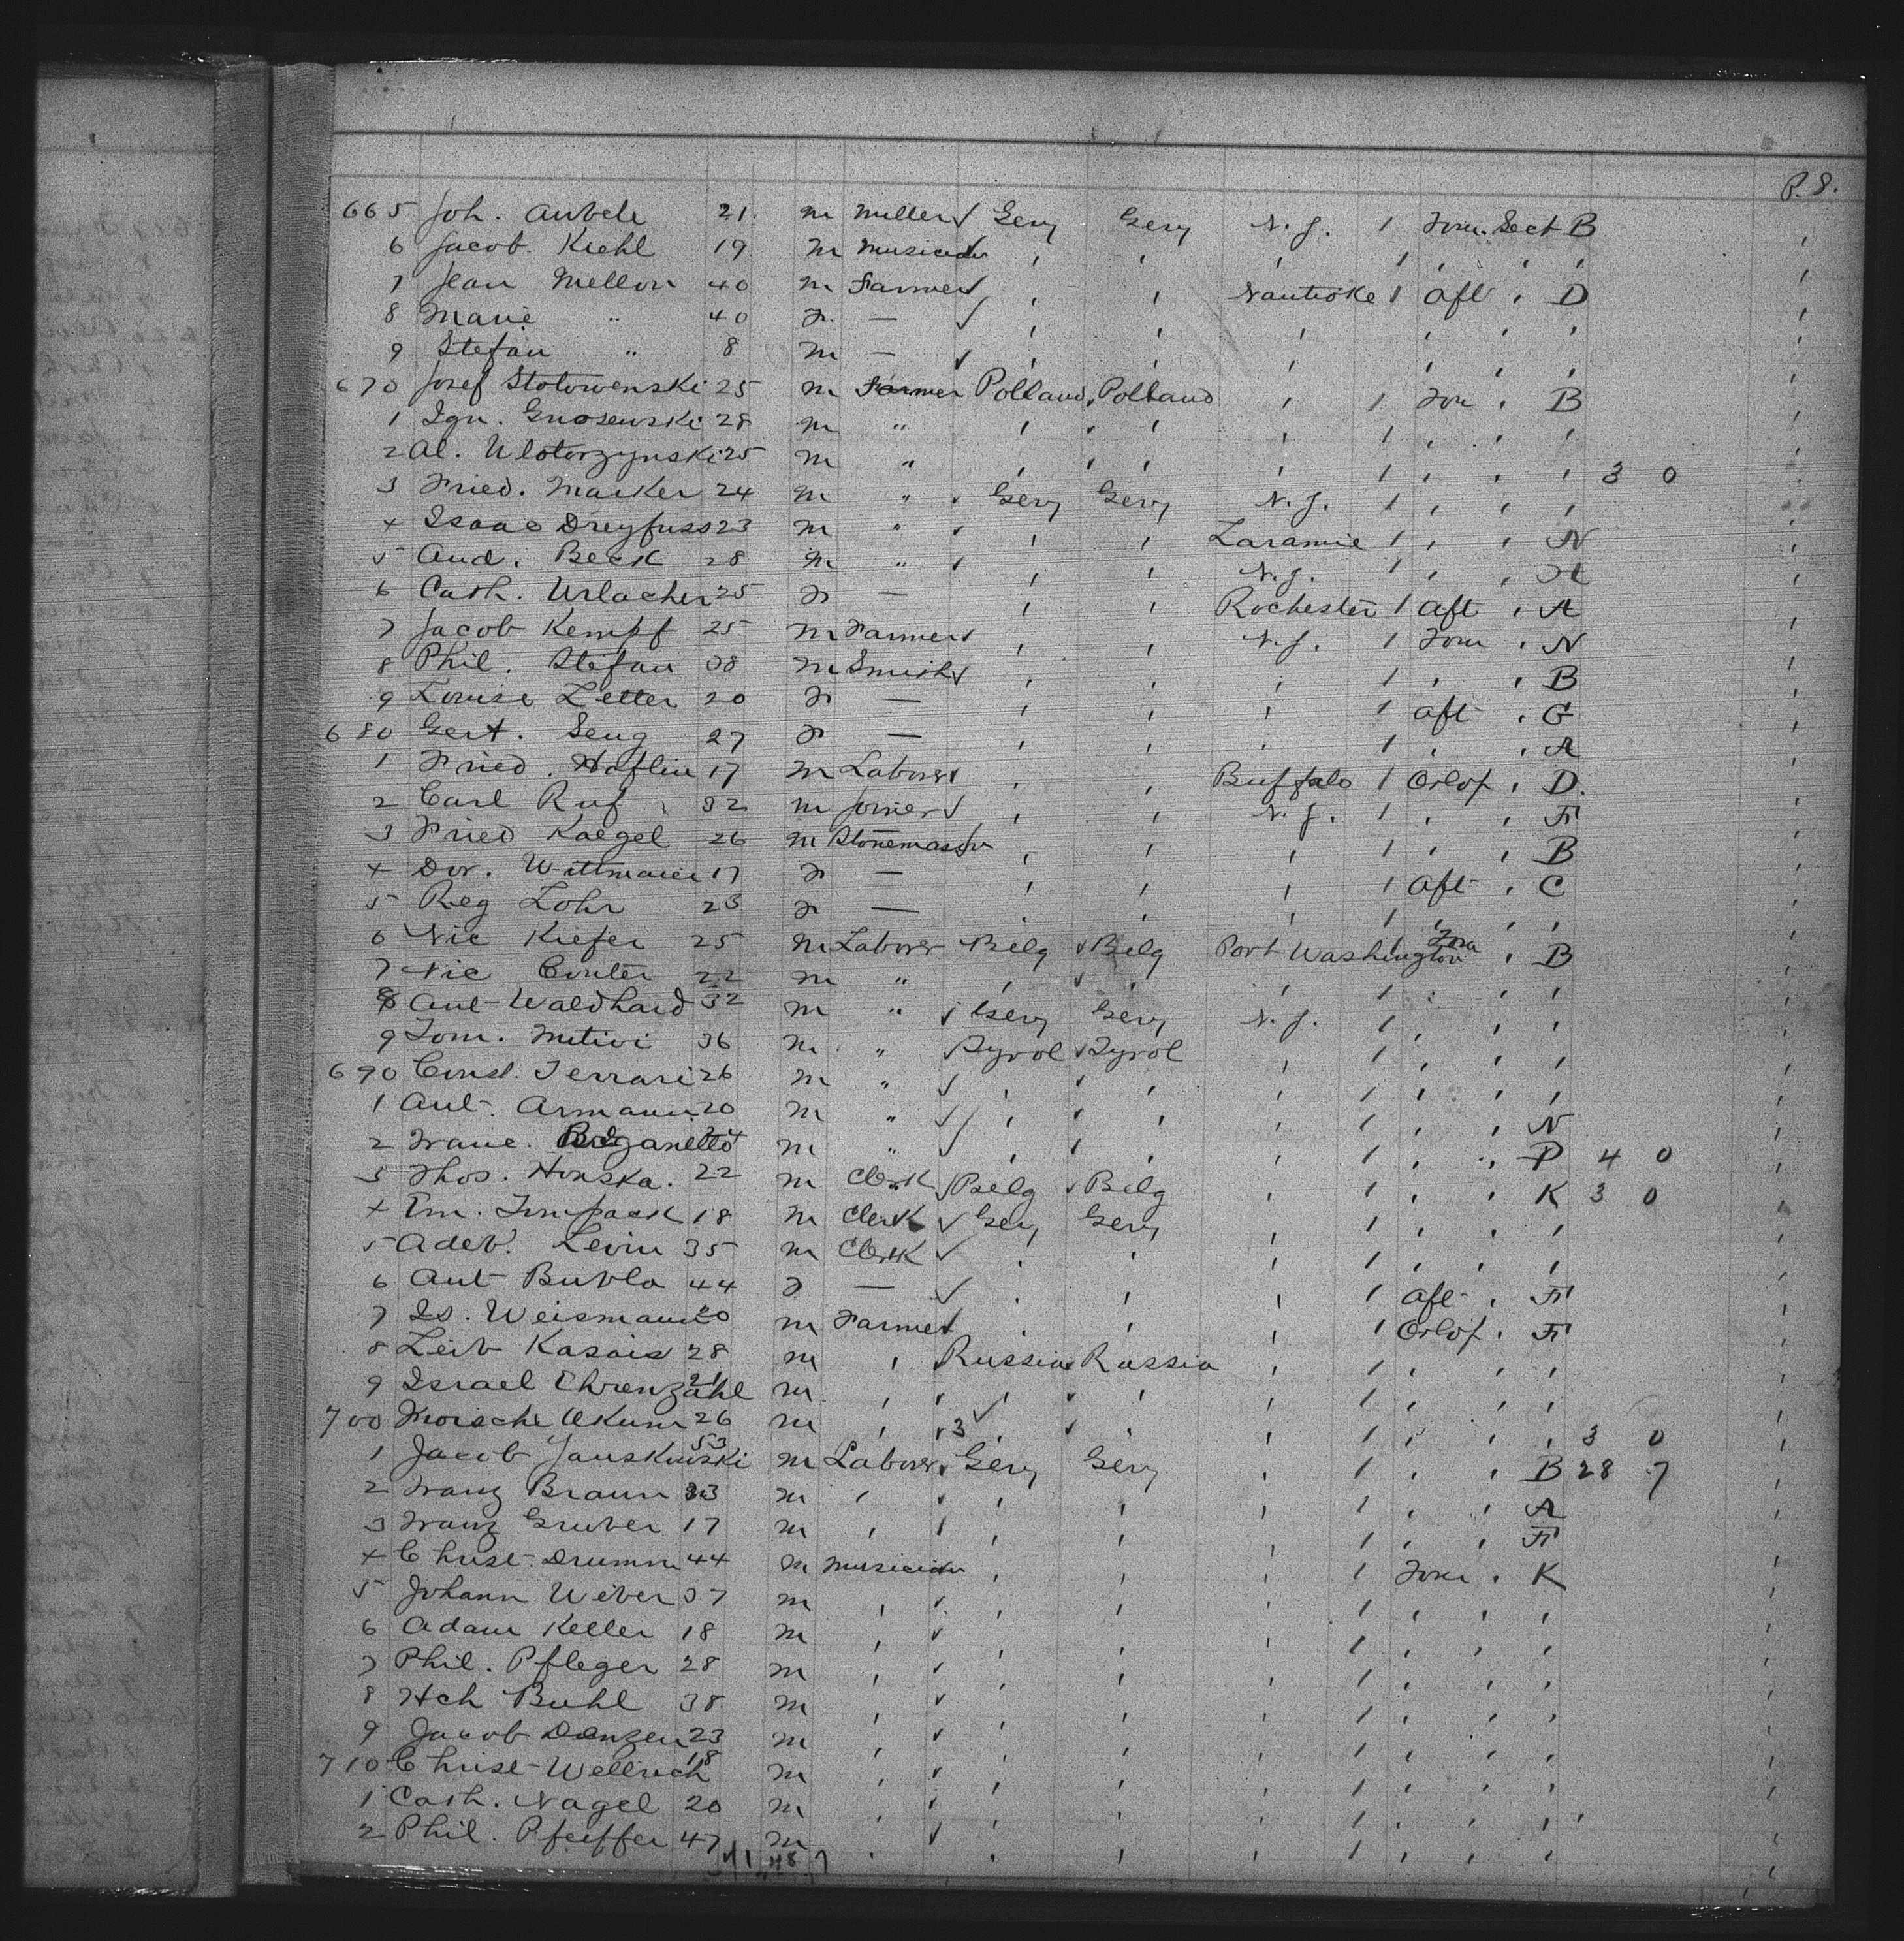 P. 8.
665 Joh. Aubele 21 m Miller ✓ Gery Gery N.J. 1 Forw. Sect B
6 Jacob. Kiehl 19 m Musician ✓ , , , 1 , , ,
7 Jean Mellon 40 m Farmer ✓ , , Nanticke 1 Aft , D
8 Marie " 40 F. — ✓ , , , , , ,
9 Stefan " 8 m — ✓ , , , , , ,
670 Josef Stotowenski 25 m Farmer Polland Polland , 1 For , B
1 Ign. Gnosewski 28 m " , , , 1 , , ,
2 Al. Ulotorzynski 25 m " , , , 1 , , , 3 0
3 Fried. Marker 24 m " ✓ Gery Gery N.J. 1 , , ,
4 Isaac Dreyfuss 23 m " ✓ , , Laramie 1 , , N
5 And. Beck 28 m " ✓ , , N.J. 1 , , A
6 Cath. Urlacher 25 F — , , Rochester 1 Aft , A
7 Jacob Kempf 25 m Farmer ✓ , , N.J. 1 Forw , N
8 Phil. Stefan 38 m Smith ✓ , , , 1 , , B
9 Louise Letter 20 F — , , , 1 Aft , G
680 Gert. Seng 27 F — , , , 1 , , A
1 Fried. Haflin 17 m Laborer ✓ , , Buffalo 1 Orlop , D.
2 Carl Ruf 32 m Joiner ✓ , , N.J. 1 , , F
3 Fried Kaegel 26 m Stonemason , , , 1 , , B
4 Dor. Wittmaier 17 F — , , , 1 Aft , C
5 Reg Lohr 23 F — , , , 1 , , ,
6 Nic Kiefer 25 m Laborer Belg ✓ Belg Port Washington Forw , B
7 Nic Conter 22 m " , ✓ , , 1 , , ,
8 Ant Waldhard 32 m " ✓ Gery Gery N.J. 1 , , ,
9 Tom. Mitivi 36 m " ✓ Tyrol ✓ Tyrol , 1 , , ,
690 Const. Ferrari 26 m " ✓ , ✓ , , 1 , , ,
1 Ant. Armanni 20 m " ✓ , ✓ , , 1 , , N
2 Franc. m " ✓ , , , , 1 , , P 4 0
3 Thos. Honska. 22 m Clerk ✓ Belg ✓ Belg , 1 , , K 3 0
4 Em. Timpack 18 m Clerk ✓ Gery Gery , 1 , , ,
5 Adeb. Levin 35 m Clerk ✓ , , , 1 , , ,
6 Ant Bubla 44 F — ✓ , , , 1 Aft , F
7 Is. Weismann 20 m Farmer , , , 1 Orlop , F
8 Leib Kasais 28 m , Russia Russia , 1 , , ,
9 Israel Ehrenzahl 21 m , ✓ , ✓ , , 1 , , ,
700 Moische Okum 26 m , ✓ 3 , ✓ , , 1 , , , 3 0
1 Jacob Jauskowski 53 m Laborer ✓ Gery Gery , 1 , , B 28 7
2 Franz Braun 23 m , ✓ , , , 1 , , A
3 Franz Gruber 17 m , ✓ , , , 1 , , F
4 Christ. Drumm 44 m Musician , , , 1 Forw , K
5 Johann Weber 37 m , ✓ , , , 1 , , ,
6 Adam Keller 18 m , ✓ , , , 1 , , ,
7 Phil. Pfleger 28 m , ✓ , , , 1 , , ,
8 Hch Buhl 38 m , ✓ , , , 1 , , ,
9 Jacob Danzen 23 m , ✓ , , , 1 , , ,
710 Christ Wellrich 18 m , ✓ , , , 1 , , ,
1 Cath. Nagel 20 m , ✓ , , , 1 , , ,
2 Phil. Pfeiffer 47 m , ✓ , , , 1 , , ,
41 48 7